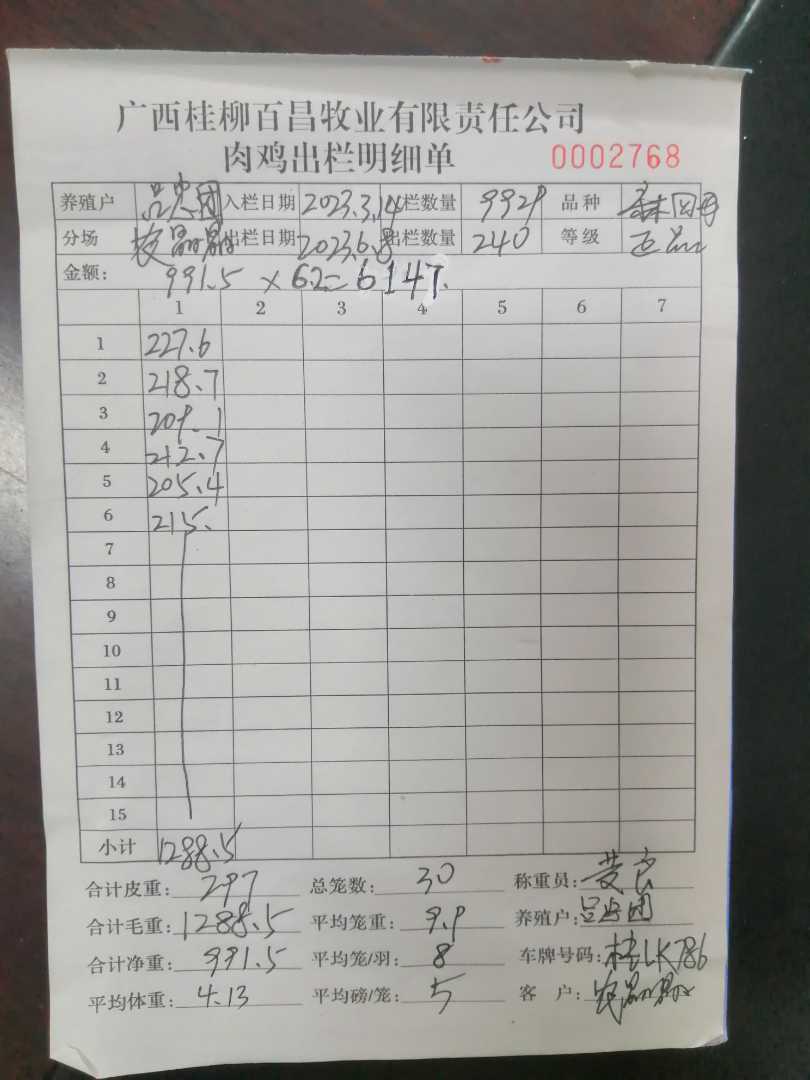 广西桂柳百昌牧业有限责任公司
肉鸡出栏明细单 0002768
养殖户 吕忠团 入栏日期 2023.3.14 出栏数量 9929 品种
分场 出栏日期 2023.6.8 出栏数量 240 等级 正品
金额: 991.5 × 6.2= 6147.
1 2 3 4 5 6 7
1 227.6
2 218.7
3 209.1
4 212.7
5 205.4
6 215.
7
8
9
10
11
12
13
14
15
小计 1288.5
合计皮重: 297 总笼数: 30 称重员:
合计毛重: 1288.5 平均笼重: 9.9 养殖户: 吕忠团
合计净重: 991.5 平均笼/羽: 8 车牌号码: 桂LK786
平均体重: 4.13 平均磅/笼: 5 客户: